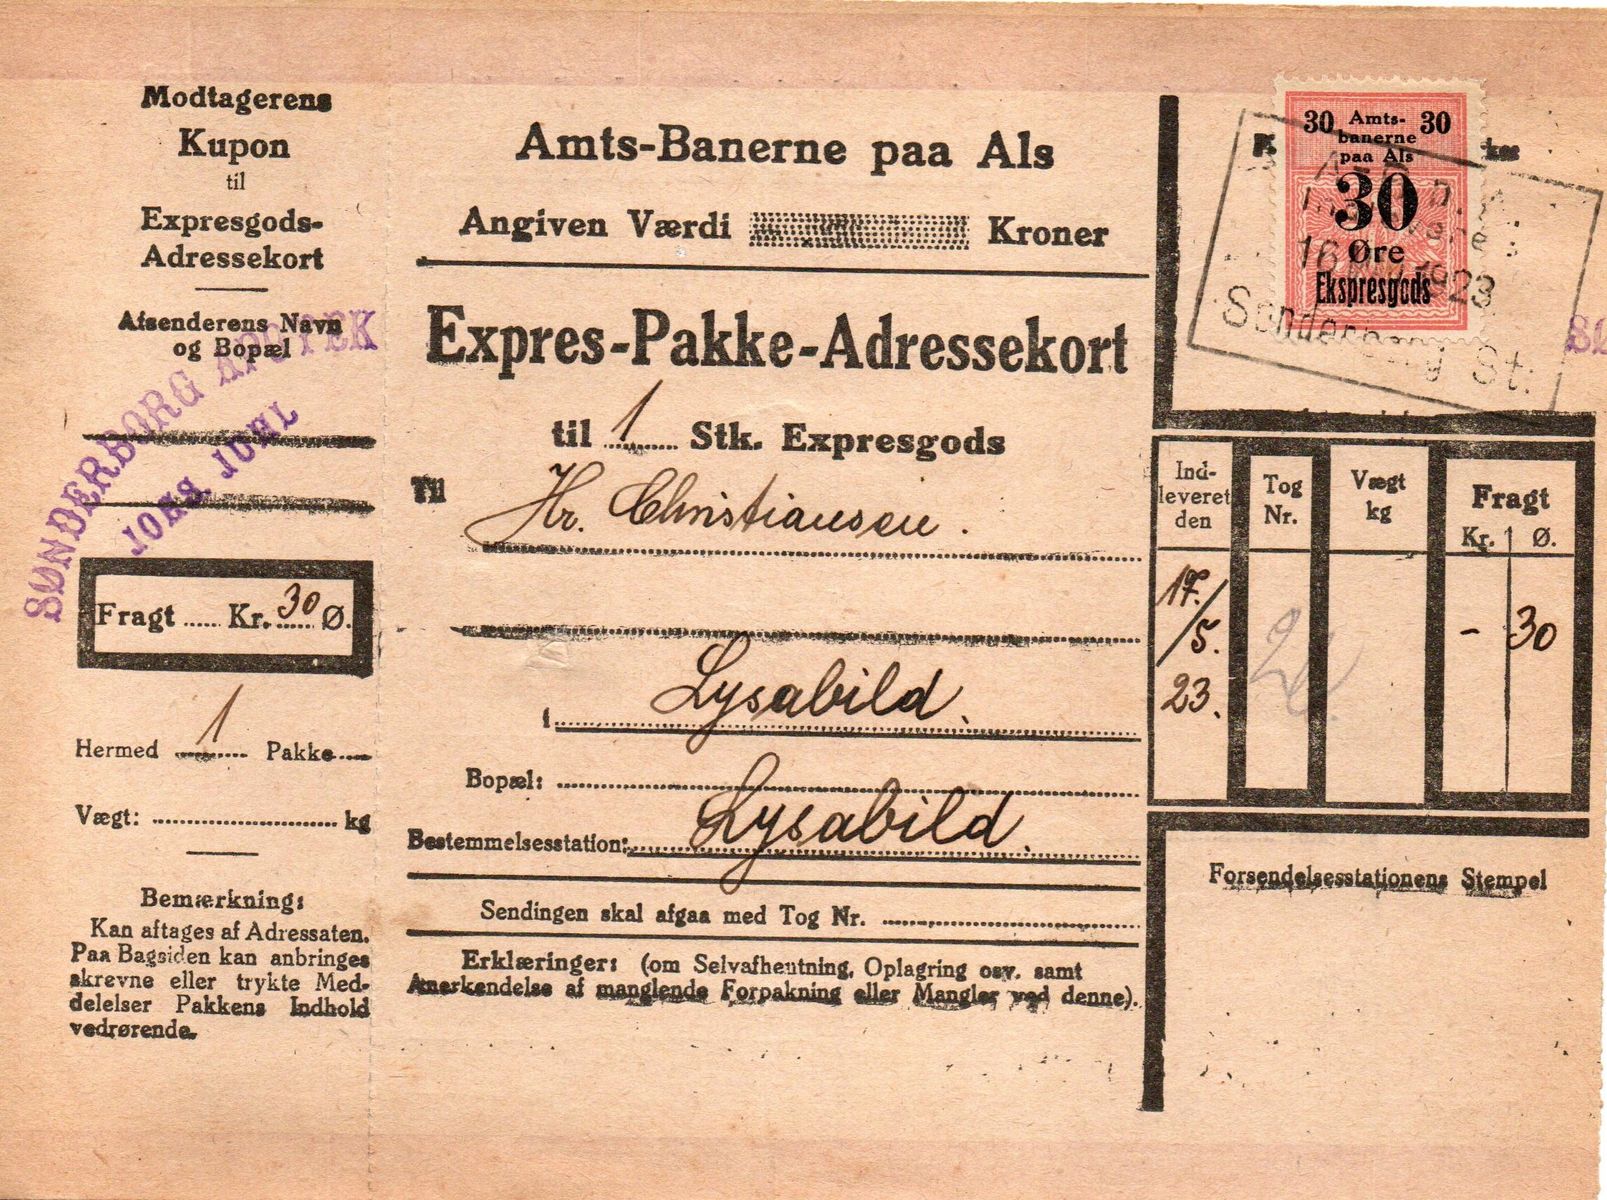 Modtagerens
Kupon
til
Expresgods-
Adressekort
Afsenderens Navn
og Bopæl
SØNDERBORG APOTEK
JOHS. JUHL
Fragt ...... Kr. 30 Ø.
Hermed 1 Pakke
Vægt: kg
Bemærkning:
Kan aftages af Adressaten.
Paa Bagsiden kan anbringes
skrevne eller trykte Med-
delelser Pakkens Indhold
vedrørende.
Amts-Banerne paa Als
Angiven Værdi Kroner
Expres-Pakke-Adressekort
til 1 Stk. Expresgods
Til Hr. Christiansen.
i Lysabild.
Bopæl:
Bestemmelsesstation: Lysabild.
Sendingen skal afgaa med Tog Nr.
Erklæringer: (om Selvafhentning, Oplagring osv. samt
Anerkendelse af manglende Forpakning eller Mangler ved denne).
30 Amts- 30
banerne
paa Als
30
Øre
Ekspresgods
16 MAJ 1923
Sønderborg St.
SØ
Ind-
leveret
den
Tog
Nr.
Vægt
kg
Fragt
Kr. Ø.
17./
5.
23.
- 30
Forsendelsesstationens Stempel